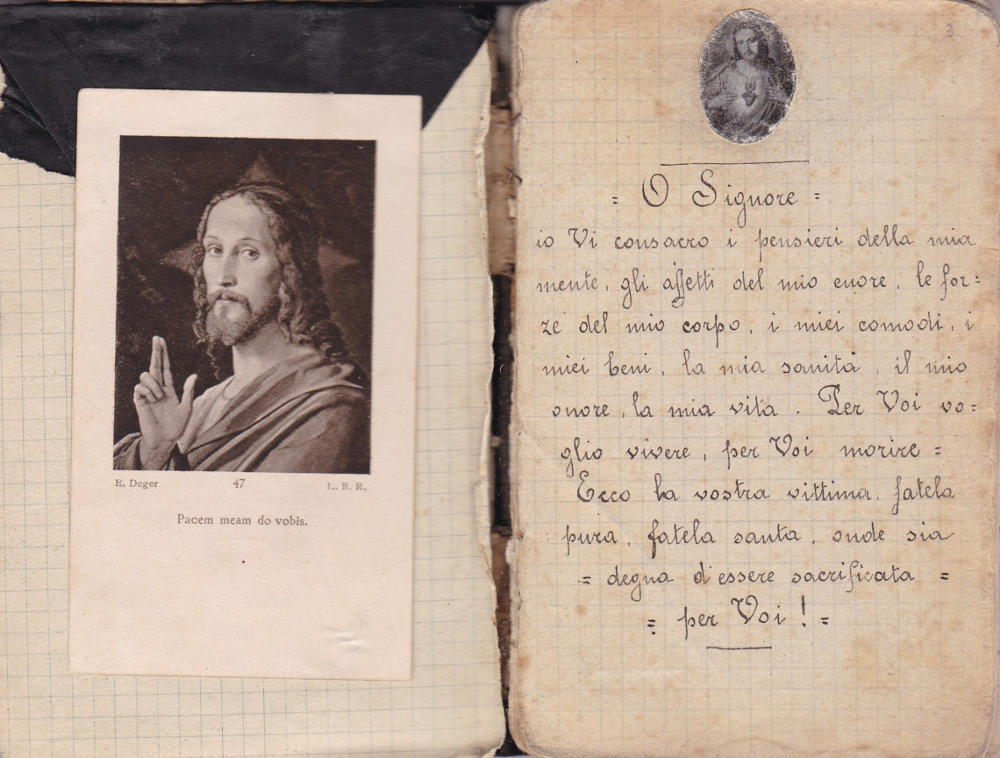 E. Deger 47 L. B. R.
Pacem meam do vobis.
3
= O Signore =
io Vi consacro i pensieri della mia
mente, gli affetti del mio cuore, le for=
ze del mio corpo, i miei comodi, i
miei beni, la mia sanità, il mio
onore, la mia vita. Per Voi vo=
glio vivere, per Voi morire =
Ecco la vostra vittima, fatela
pura, fatela santa, onde sia
= degna d'essere sacrificata =
= per Voi! =